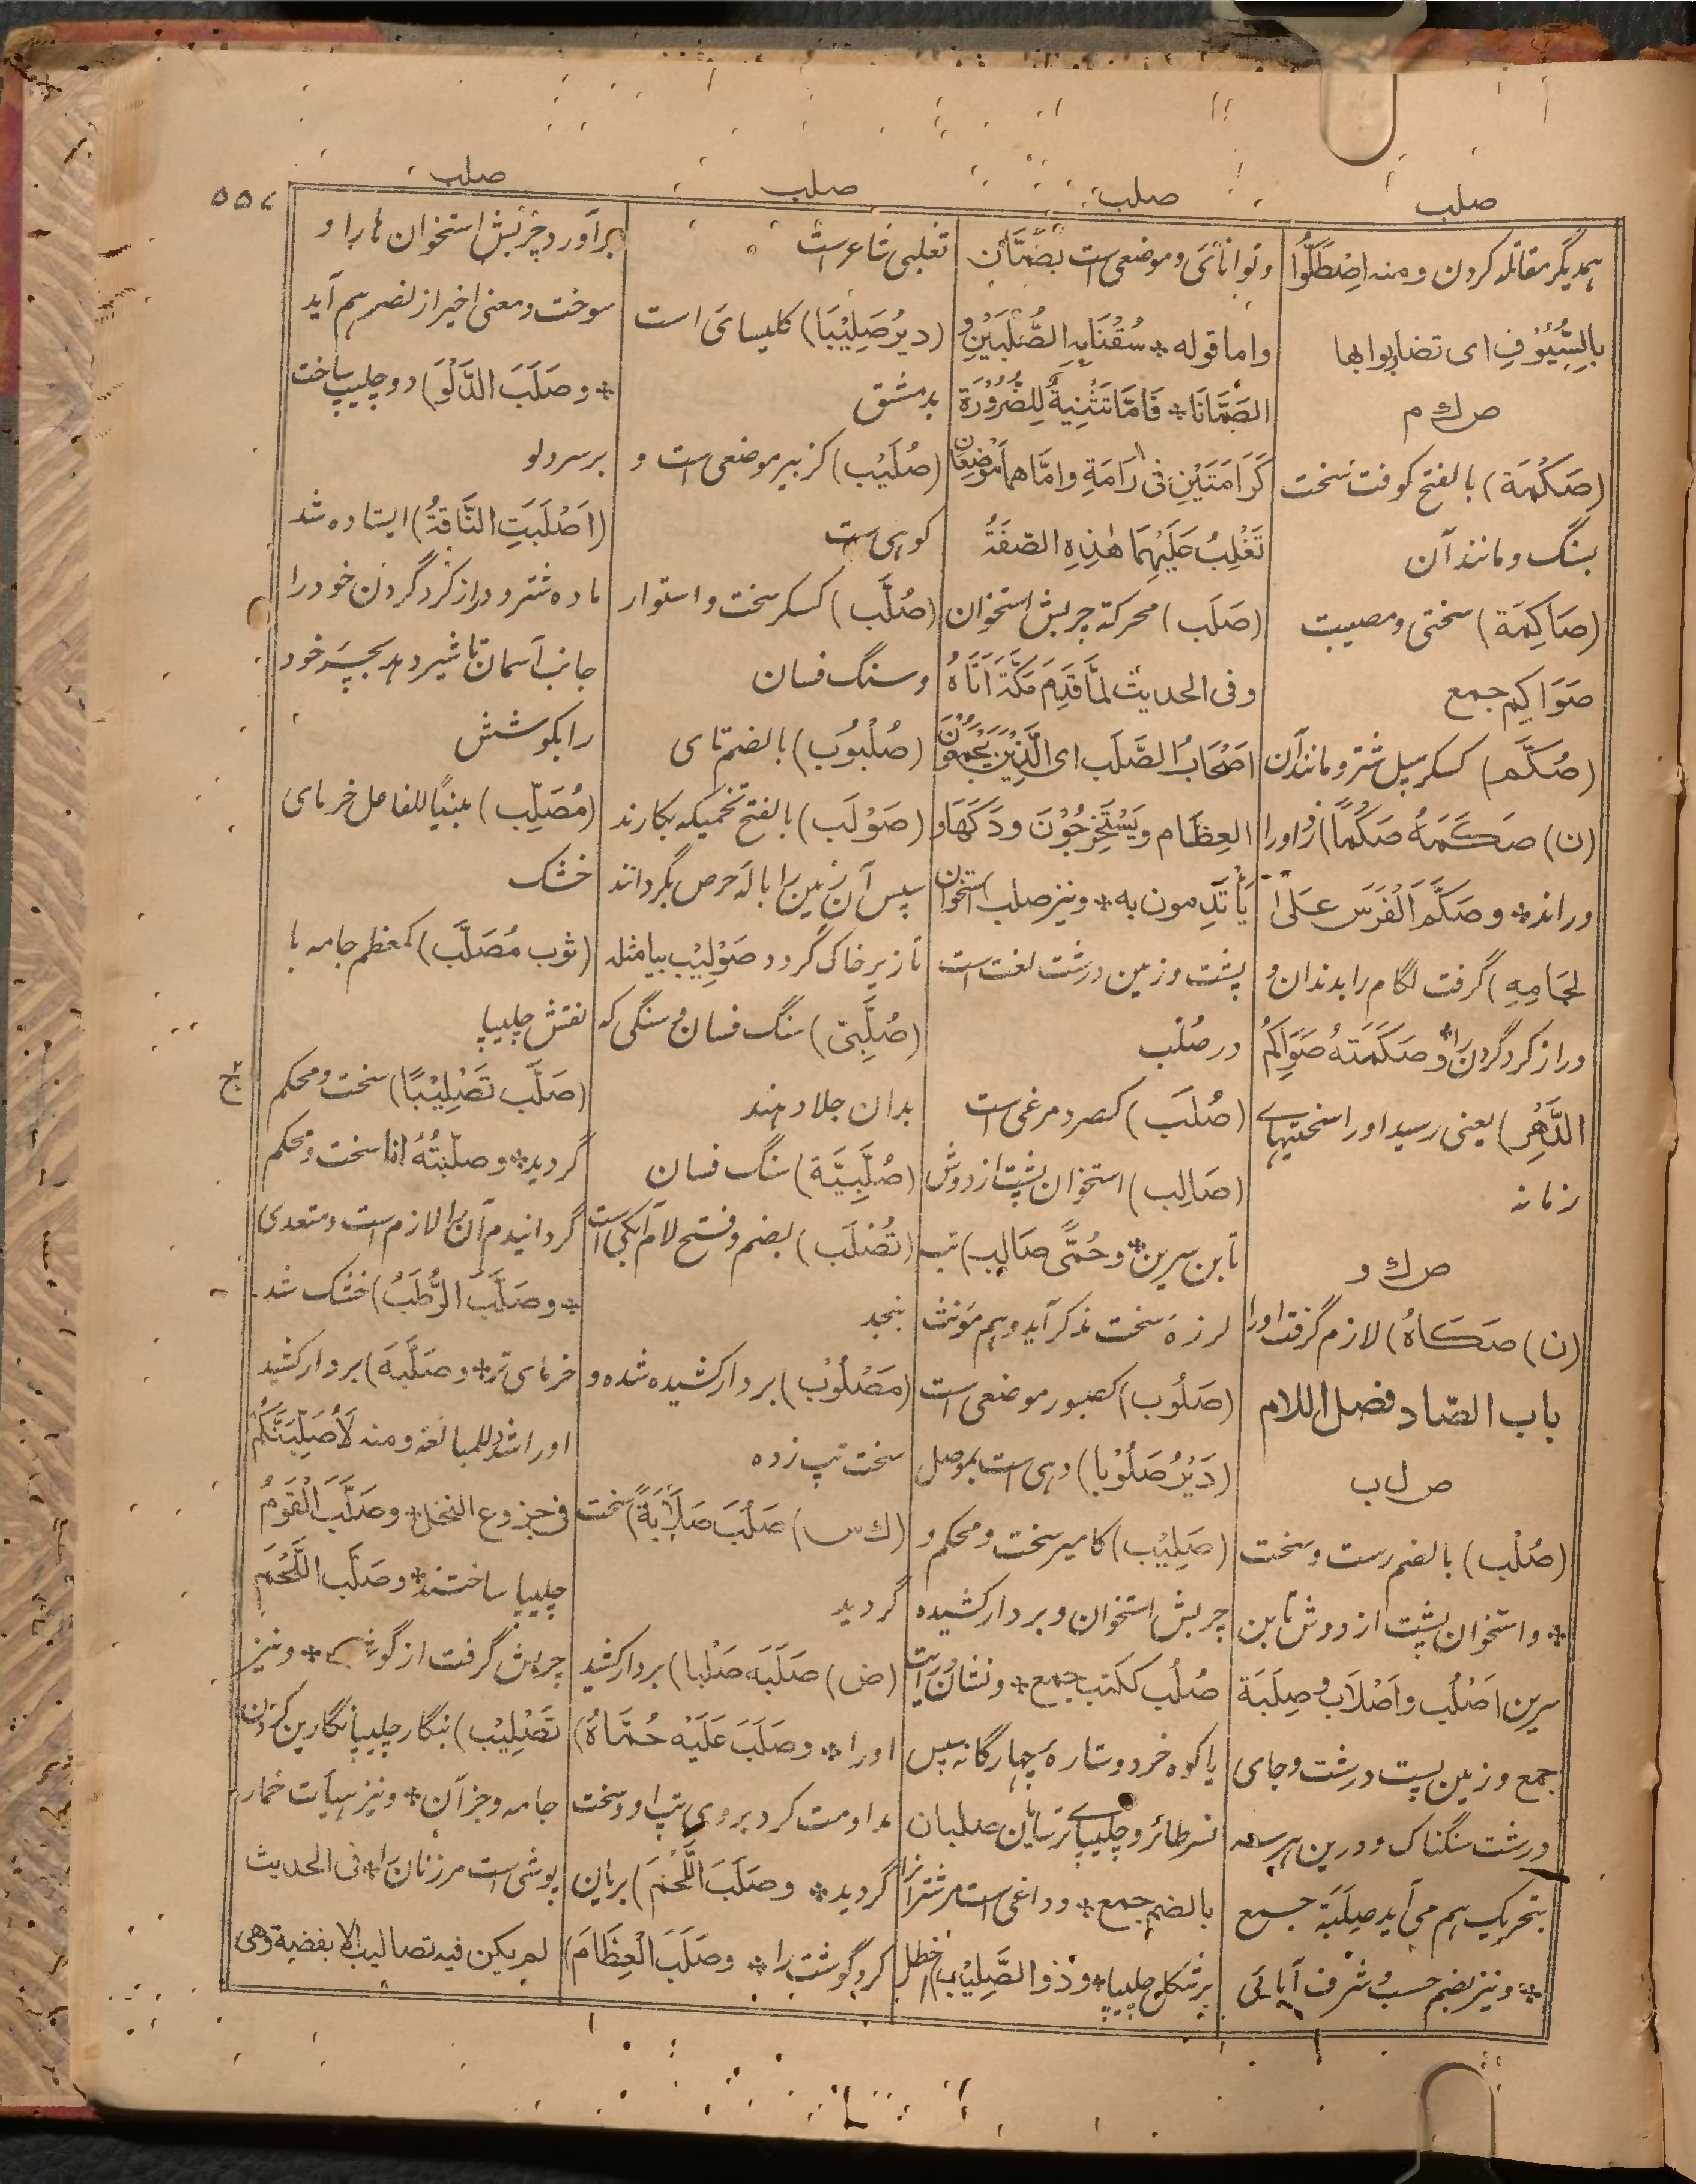 صلب
صلب
صلب
صلب
٥٥٧
همدیگر مقاتله کردن و منه اِصْطَكُّوا
بِالسُّيُوْفِ ای تضاربوا بها
ص ك م
(صَكْمَة) بالفتح کوفت سخت
بسنگ و مانند آن
(صَاكِمَة) سختی و مصیبت
صَوَاكِم جمع
(صُكَّم) کسکر سپل شتر و مانند آن
(ن) صَكَمَهُ صَكْمًا) زد او را و
راند * و صَكَمَ الْفَرَس عَلیٰ
لِجَامِهِ) گرفت لگام را بدندان و
دراز کرد گردن را * و صَكَمَتْهُ صَوَاكِمُ
الدَّهْرِ) یعنی رسید او را سختیهای
زمانه
ص ك و
(ن) صَكَاهُ) لازم گرفت او را
باب الصاد فصل اللام
ص ل ب
(صُلْب) بالضم درست و سخت
* و استخوان پشت از دوش تا بن
سرین اَصْلُب و اَصْلَاب و صِلَبَة
جمع و زمین پست درشت و جای
درشت سنگناک و درین هر سه
بتحریک هم می آید صِلَبَة جمع
* و نیز بضم حسب و شرف آبائی
و توانائی و موضعی است بصَمَّان
و اما قوله * سُقْنَا بِهِ الصُّلْبَيْنِ وَ
الصَّمَّانَا * فَاِمَّا تَثْنِيَةٌ لِلضَّرُوْرَة
كَرَامَتَيْنِ فی رَامَة و اِمَّا هما مَوْضِعَان
تَغْلِبُ عَلَيْهِمَا هٰذِهِ الصّفَةُ
(صَلَب) محرکة چربش استخوان
و فی الحدیث لَمَّا قَدِمَ مَكَّةَ اَتَاهُ
اَصْحَابُ الصَّلَب ای الَّذِيْنَ يَجْمَعُوْنَ
العِظَام و يَسْتَخْرِجُوْنَ وَدَكَهَا و
يَأْتَدِمون به * و نیز صلب استخوان
پشت و زمین درشت لغت است
در صُلْب
(صُلَب) کصرد مرغی است
(صَالِب) استخوان پشت از دوش
تا بن سرین * و حُمَّى صَالِب) تب
لرزه سخت مذکر آید و هم مؤنث
(صَلُوب) کصبور موضعی است
(دَيْرُ صَلُوْبا) دهی است بموصل
(صَلِيْب) کامیر سخت و محکم و
چربش استخوان و بردار کشیده
صُلُب ککتب جمع * و نشان رایت
یا کوه خرد و ستاره چهارگانه سپس
نسر طائر و چلیپای ترسایان صلبان
بالضم جمع * و داغی است مر شتر را
بر شکل چلیپا * و ذو الصَّلِيْب) اخطل
تغلبی شاعر است
(دیرُ صَلِيْبَا) کلیسای است
بدمشق
(صُلَيْب) کزبیر موضعی است و
کوهی ست
(صُلَّب) کسکر سخت و استوار
و سنگ فسان
(صُلْبُوْب) بالضم نای
(صَوْلَب) بالفتح تخمیکه بکارند
سپس آن زمین را باله حرص بگردانند
تا زیر خاک گردد صَوْلِيْب بیا مثله
(صُلَّبِىّ) سنگ فسان و سنگی که
بدان جلا دهند
(صُلَّبِيَّة) سنگ فسان
(تُصْلَب) بضم و فتح لام آبکی است
بنجد
(مَصْلُوْب) بردار کشیده شده و
سخت تپ زده
(ك س) صَلُبَ صَلَابَةً) سخت
گردید
(ض) صَلَبَه صَلْبا) بردار کشید
او را * و صَلَبَ عَلَيْه حُمَّاهُ)
مداومت کرد بروی تپ او و سخت
گردید * و صَلَبَ اللَّحْمَ) بریان
کرد گوشت را * و صَلَبَ الْعِظَامَ)
برآورد چربش استخوان ها را و
سوخت و معنی اخیر از نصر هم آید
* و صَلَبَ الدَّلْوَ) دو چلیپ ساخت
بر سر دلو
(اَصْلَبَتِ النَّاقَةُ) ایستاده شد
ماده شتر و دراز کرد گردن خود را
جانب آسمان تا شیر دهد بچه خود
را بکوشش
(مُصَلِّب) مبنیًا للفاعل خرمای
خشک
(ثوب مُصَلَّب) کمعظم جامه با
نقش چلیپا
(صَلَّب تَصْلِيْبًا) سخت و محکم
گردید * و صلّبتُهُ انا سخت و محکم
گردانیدم آن را لازم است و متعدی
* و صَلَّبَ الرُّطَبُ) خشک شد
خرمای تر * و صَلَّبَه) بردار کشید
او را شدد للمبالغة و منه لَاُصَلِّبَنَّكُمْ
فی جزوع النخل * و صَلَّبَ الْقَوْمُ
چلیپا ساختند * و صَلَّب اللَّحْمَ
چربش گرفت از گوشت * و نیز
تَصْلِيْب) بنگار چلیپا نگارین کردن
جامه و جز آن * و نیز هیأت خمار
پوشی است مر زنان را * فی الحدیث
لم یکن فیه تصالیب الا بفضیة وهی